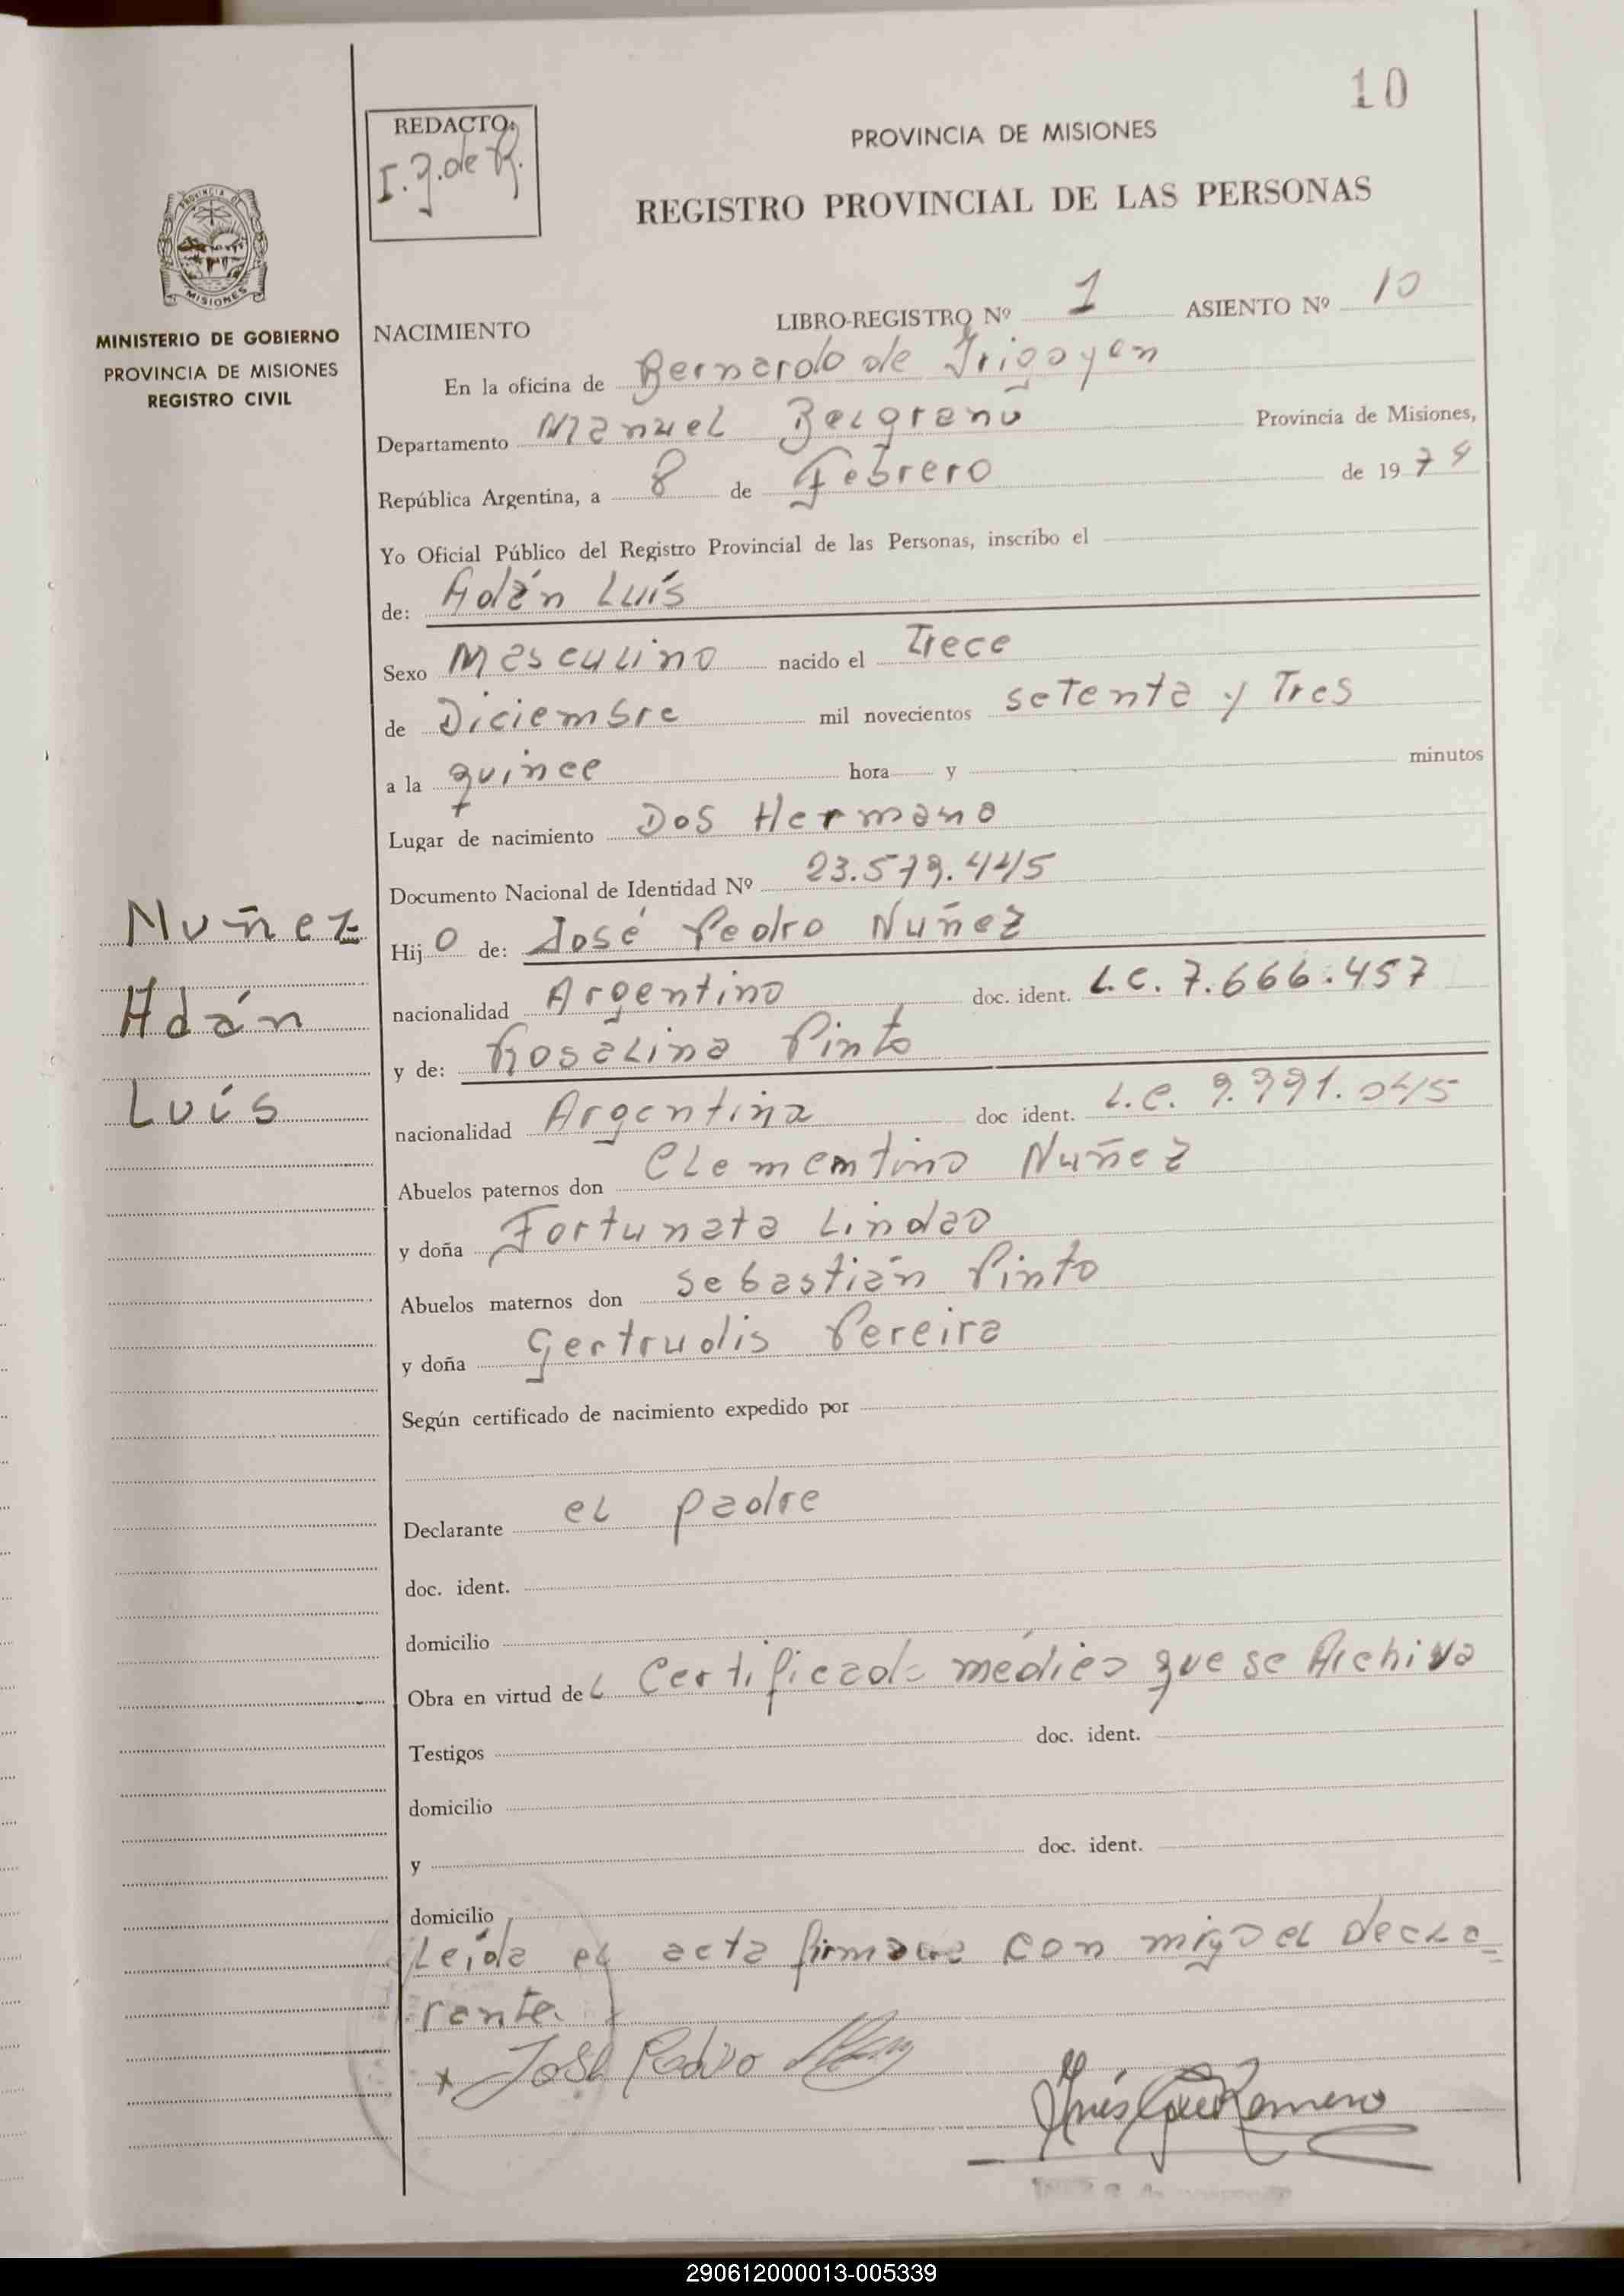 10
REDACTO:
I. J. de R.
PROVINCIA DE MISIONES
REGISTRO PROVINCIAL DE LAS PERSONAS
PROVINCIA DE
MISIONES
MINISTERIO DE GOBIERNO
PROVINCIA DE MISIONES
REGISTRO CIVIL
NACIMIENTO LIBRO-REGISTRO Nº 1 ASIENTO Nº 10
En la oficina de Bernardo de Irigoyen
Departamento Manuel Belgrano Provincia de Misiones,
República Argentina, a 8 de Febrero de 1974
Yo Oficial Público del Registro Provincial de las Personas, inscribo el
de: Adán Luís
Sexo Masculino nacido el Trece
de Diciembre mil novecientos setenta y Tres
a la quince hora y minutos
Lugar de nacimiento Dos Hermano
Documento Nacional de Identidad Nº 23.579.445
Nuñez
Adán
Luís
Hijo de: José Pedro Nuñez
nacionalidad Argentino doc. ident. L.C. 7.666.457
y de: Rosalina Pinto
nacionalidad Argentina doc ident. L.C. 9.991.045
Abuelos paternos don Clementino Nuñez
y doña Fortunata Lindao
Abuelos maternos don Sebastián Pinto
y doña Gertrudis Pereira
Según certificado de nacimiento expedido por
Declarante el padre
doc. ident.
domicilio
Obra en virtud del Certificado médico que se Archiva
Testigos doc. ident.
domicilio
y doc. ident.
domicilio
Leída el acta firma con migo el decla-
rante.
x José Pedro
Inés Romero
290612000013-005339